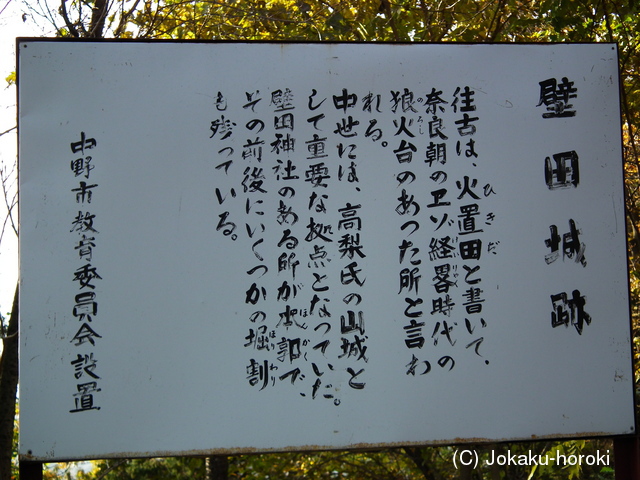 壁田城跡
往古は、火置田と書いて、
ひきだ
奈良朝のエゾ経畧時代の
けいりゃく
狼火台のあった所と言わ
のろし
れる。
中世には、高梨氏の山城と
して重要な拠点となっていた。
壁田神社のある所が本郭で、
ほんかく
その前後にいくつかの堀割
ほりわり
も残っている。
中野市教育委員会設置
(C) Jokaku-horoki